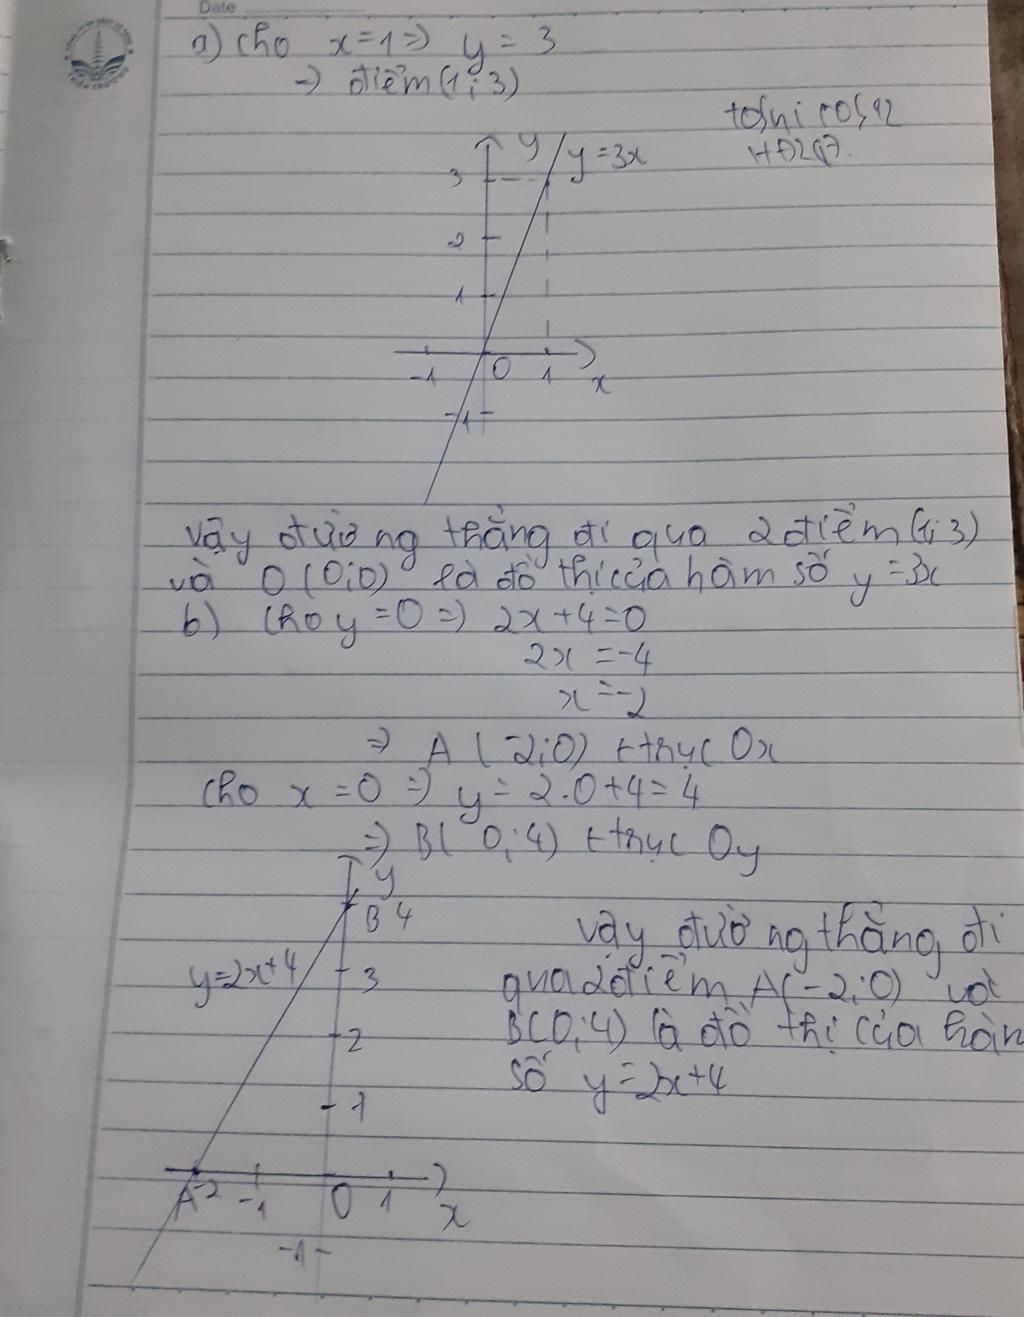 Date
a) Cho x=1 => y = 3
=> điểm (1; 3)
y
y=3x
3
2
1
-1 O 1 x
-1
Vậy đường thẳng đi qua 2 điểm (1; 3)
và O (0;0) là đồ thị của hàm số y=3x
b) Cho y=0 => 2x+4=0
2x = -4
x = -2
=> A (-2;0) t trục Ox
Cho x=0 => y = 2.0+4=4
=> B( 0;4) t trục Oy
y
B 4
y=2x+4
3
2
1
A -2 -1 O 1 x
-1
Vậy đường thẳng đi
qua 2 điểm A(-2;0) và
B(0;4) là đồ thị của hàm
số y=2x+4